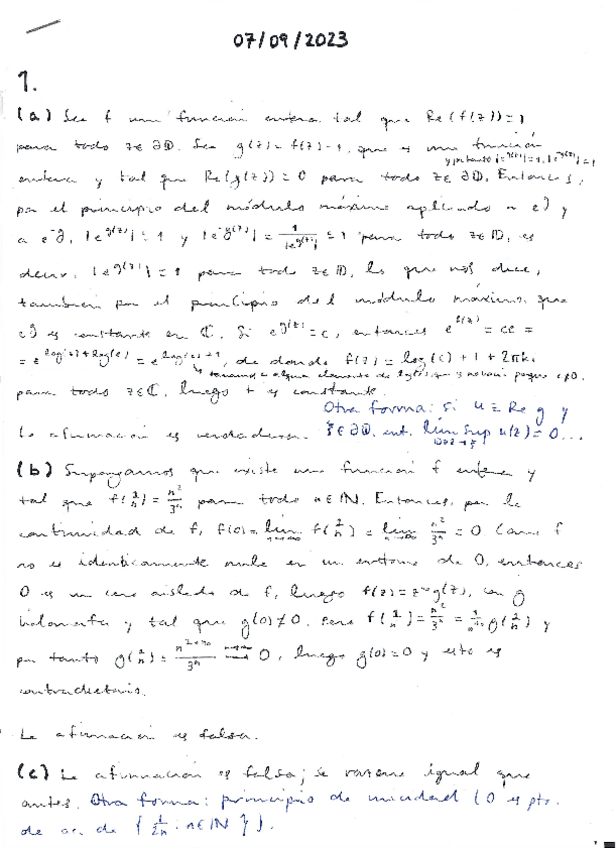 07/09/2023
1.
(a) Sea f una función entera tal que Re(f(z))=1
para todo z∈∂𝔻. Sea g(z)=f(z)-1, que es una función
y por tanto |e^{g(z)}|=1, |e^{-g(z)}|=1
entera y tal que Re(g(z))=0 para todo z∈∂𝔻. Entonces,
por el principio del módulo máximo aplicado a e^g y
a e^{-g}, |e^{g(z)}|≤1 y |e^{-g(z)}|=1/|e^{g(z)}|≤1 para todo z∈𝔻, es
decir, |e^{g(z)}|=1 para todo z∈𝔻, lo que nos dice,
también por el principio del módulo máximo, que
e^g es constante en ℂ. Si e^{g(z)}=c, entonces e^{f(z)}=ce=
=e^{log(c)+log(e)}=e^{log(c)+1}, de donde f(z)=log(c)+1+2πki
para todo z∈ℂ, luego f es constante.
Otra forma: si u=Re g y
La afirmación es verdadera. ξ∈∂𝔻, ent. lim sup u(z)=0...
(b) Supongamos que existe una función f entera y
tal que f(1/n)=n²/3ⁿ para todo n∈ℕ. Entonces, por la
continuidad de f, f(0)=lim_{n→∞} f(1/n)=lim_{n→∞} n²/3ⁿ=0. Como f
no es idénticamente nula en un entorno de 0, entonces
0 es un cero aislado de f, luego f(z)=z^m g(z), con g
holomorfa y tal que g(0)≠0. Pero f(1/n)=n²/3ⁿ=1/n^m g(1/n) y
por tanto g(1/n)=n^{2+m}/3ⁿ → 0, luego g(0)=0 y esto es
contradictorio.
La afirmación es falsa.
(c) La afirmación es falsa; se razona igual que
antes. Otra forma: principio de unicidad (0 es pto.
de ac. de {1/2n : n∈ℕ}).